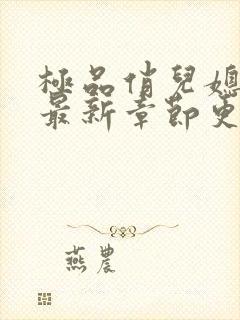 極品俏兒媳
最新章節更
燕農